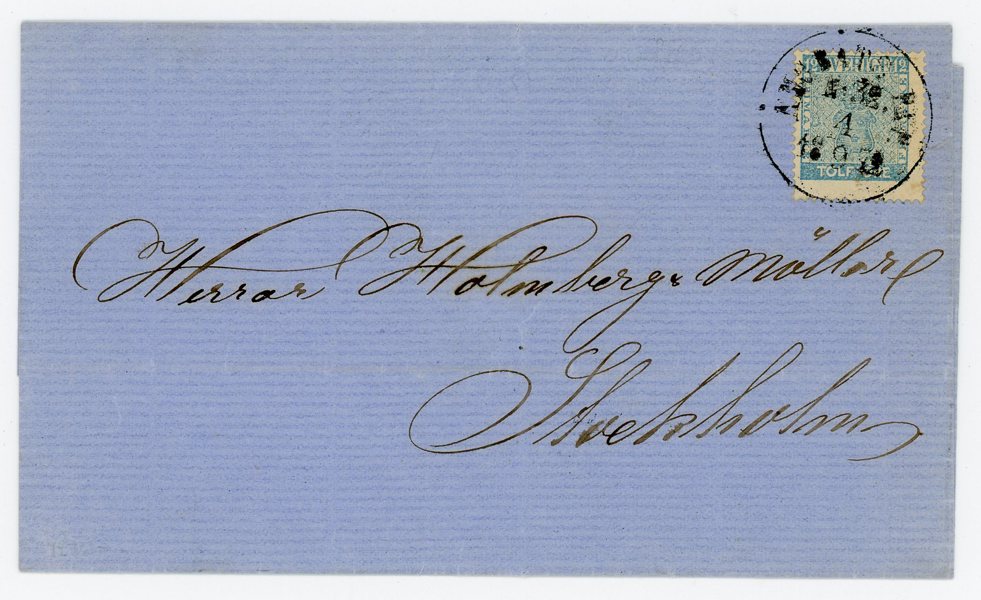 12 SVERIGE 12
4
TOLF ÖRE
Herrar Holmberg & Möller
Stockholm